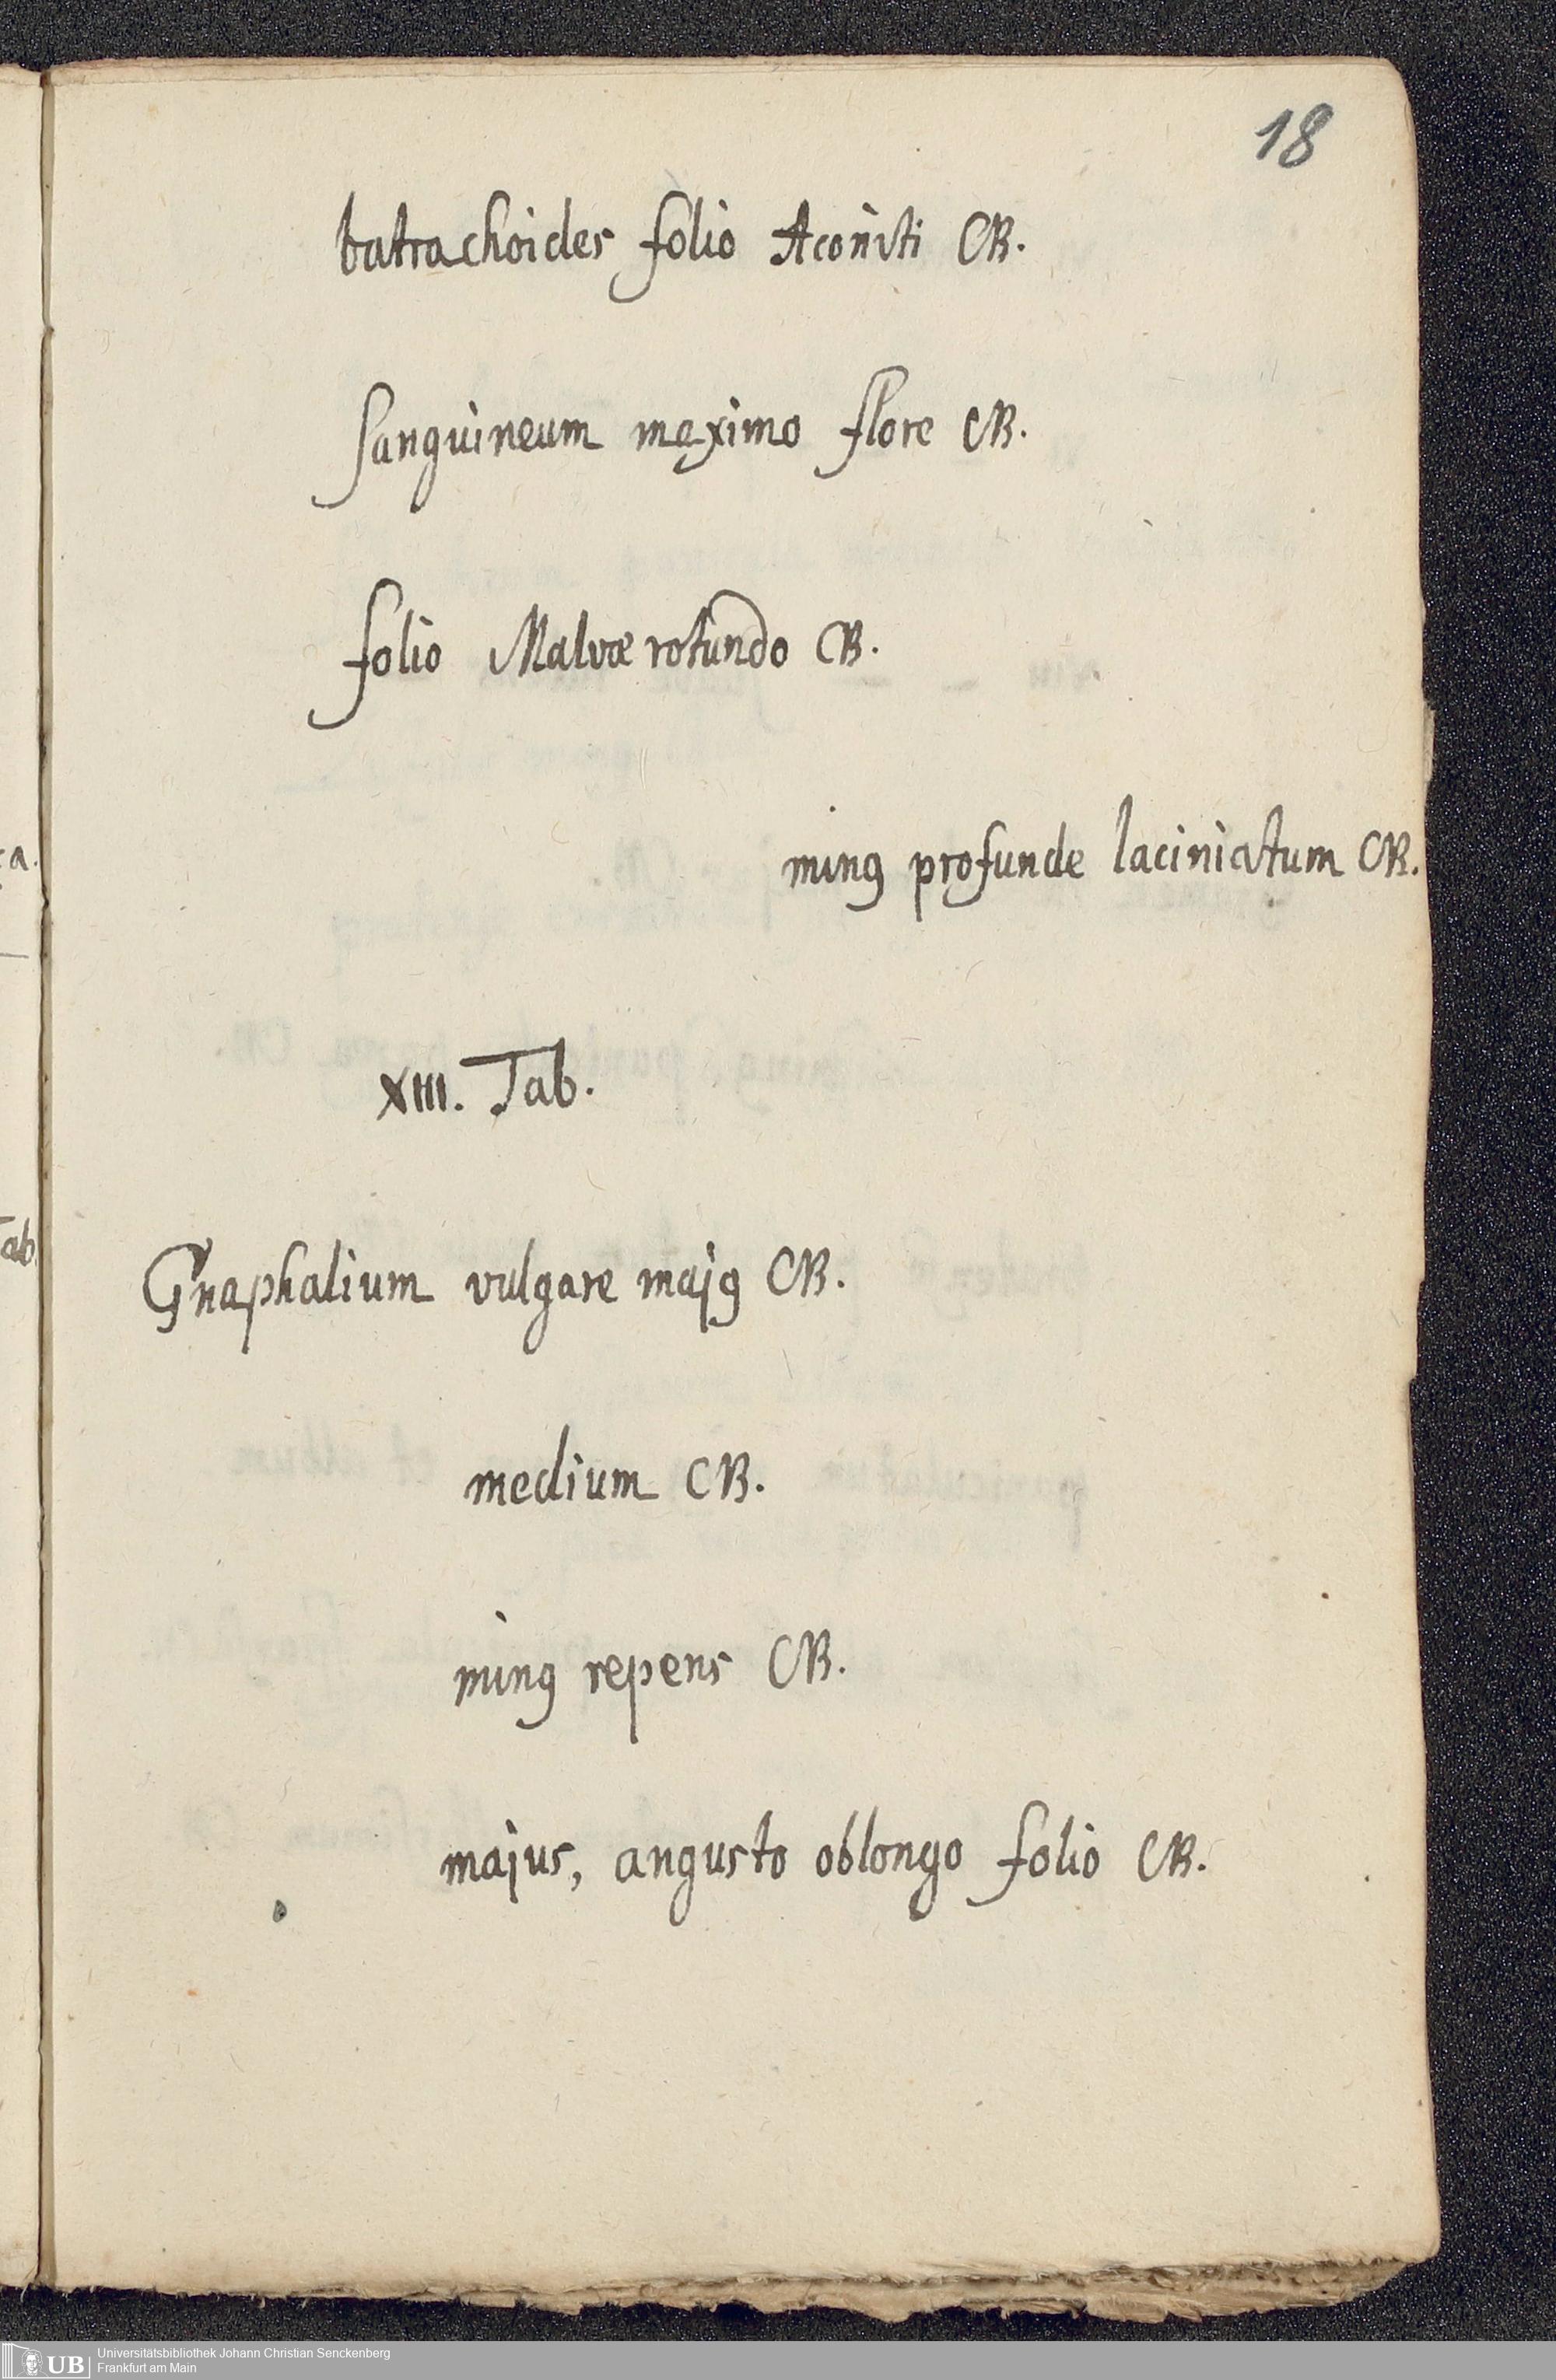 18
batrachoides folio Aconiti CB.
sanguineum maximo flore CB.
folio Malvæ rotundo CB.
minꝰ profunde laciniatum CB.
XIII. Tab.
Gnaphalium vulgare majꝰ CB.
medium CB.
minꝰ repens CB.
majus, angusto oblongo folio CB.
a.
ab.
UB
Universitätsbibliothek Johann Christian Senckenberg
Frankfurt am Main